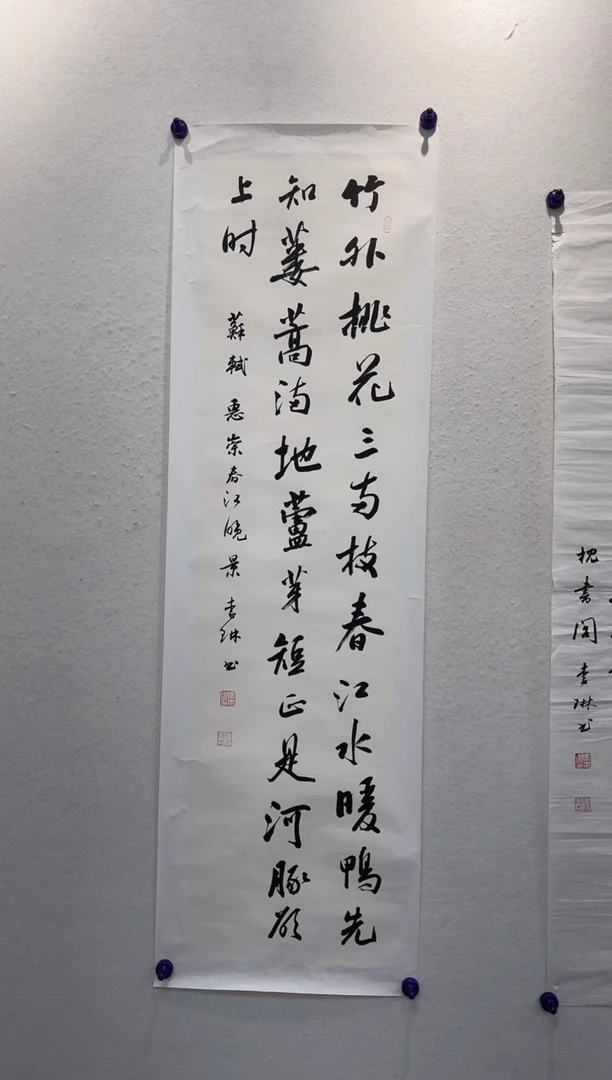 竹外桃花三両枝春江水暖鴨先
知蔞蒿满地蘆芽短正是河豚欲
上时
蘇軾 惠崇春江晚景 李琳书
枕書阁 李琳书